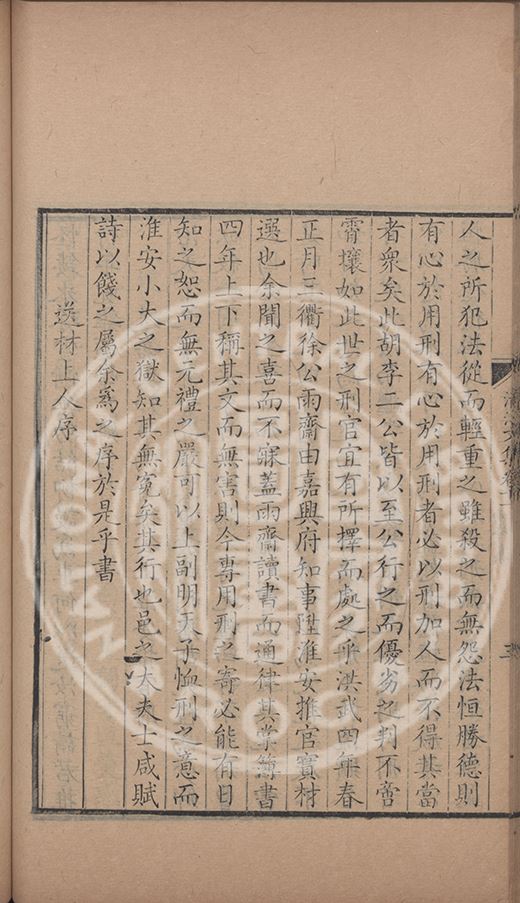 人之所犯法從而輕重之雖殺之而無怨法恒勝德則
有心於用刑有心於用刑者必以刑加人而不得其當
者衆矣此胡李二公皆以至公行之而優劣之判不啻
霄壤如此世之刑官宜有所擇而處之乎洪武四年春
正月三衢徐公雨齋由嘉興府知事陞淮安推官實材
選也余聞之喜而不寐蓋雨齋讀書而通律其掌簿書
四年上下稱其文而無害則今專用刑之寄必能有日
知之恕而無元禮之嚴可以上副明天子恤刑之意而
淮安小大之獄知其無冤矣其行也邑之大夫士咸賦
詩以餞之屬余爲之序於是乎書
送材上人序